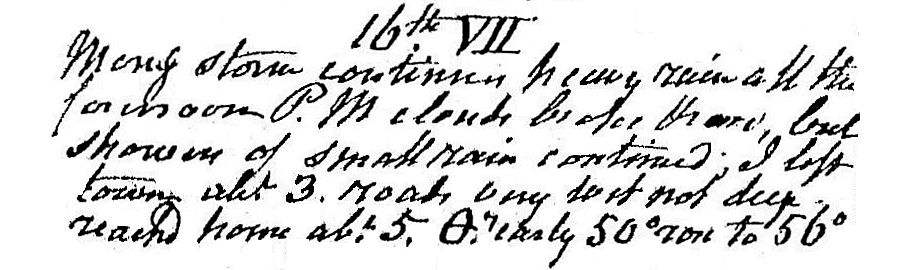 16th VII
Morng storm continues heavy rain all the
forenoon P.M clouds broke then, but
showers of small rain continued; I left
town abt 3. roads very wet not deep.
reachd home abt 5. early 50° ron to 56°